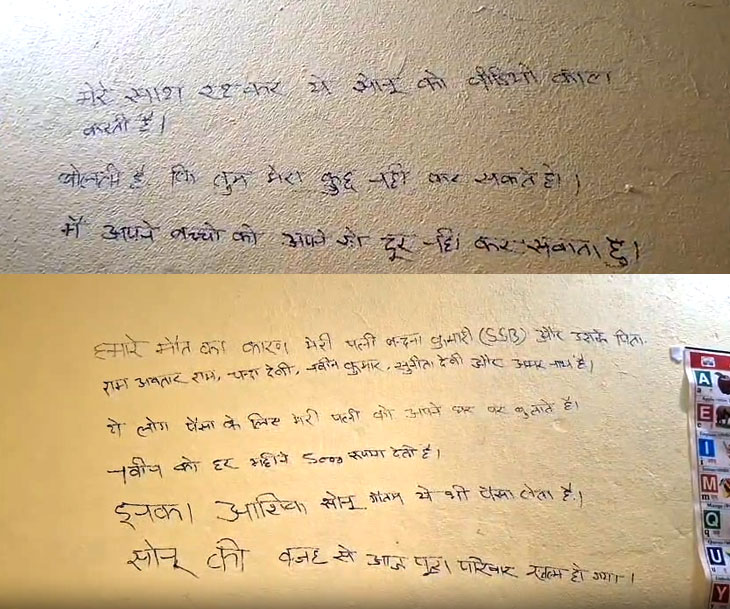 मेरे साथ रहकर ये सोनू को वीडियो काल
करती है।
बोलती है कि तुम मेरा कुछ नहीं कर सकते हो।
मैं अपने बच्चो को अपने से दूर नहीं कर सकता हुँ।
हमारे मौत का कारण मेरी पत्नी कुमारी (SSB) और उसके पिता
राम अवतार राम, देवी, नवीन कुमार, सुनीता देवी और अमर नाथ है।
ये लोग पैसा के लिए मेरी पत्नी को अपने घर पर बुलाते है।
नवीन को हर महीने 5000 रूपया देती है।
इनका आशिक सोनू गौतम ये भी पैसा लेता है।
सोनू की वजह से आज पुरा परिवार खत्म हो गया।
A
E
I
M
Q
U
Y